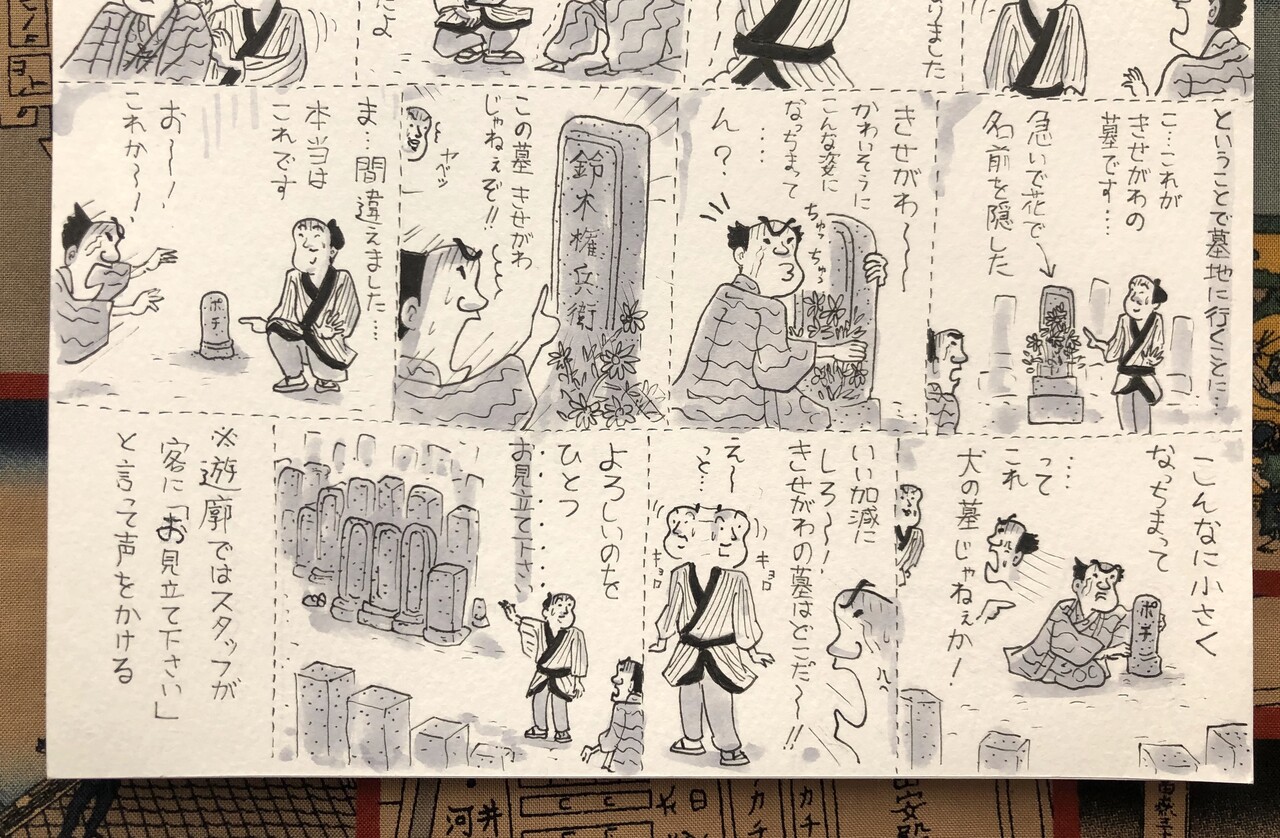 ました
だよ
ということで墓地に行くことに…
こ…これが
きせがわの
墓です…
急いで花で
名前を隠した
きせがわ〜〜
かわいそうに
こんな姿に
なっちまって
…
ん？
ちゅっ
ちゅっ
ちゅっ
鈴木権兵衛
この墓 きせがわ
じゃねぇぞ!!
ヤベッ
ま…間違えました…
本当は
これです
ポチ
お〜〜！
これか〜〜〜
こんなに小さく
なっちまって
…
って
これ
犬の墓じゃねぇか！
ポチ
いい加減に
しろ〜〜！
きせがわの墓はどこだ〜〜!!
え〜
っと…
キョロ
キョロ
よろしいのを
ひとつ
お見立て下さい
※遊廓ではスタッフが
客に「お見立て下さい」
と言って声をかける
河
井
日
カチ
カチ